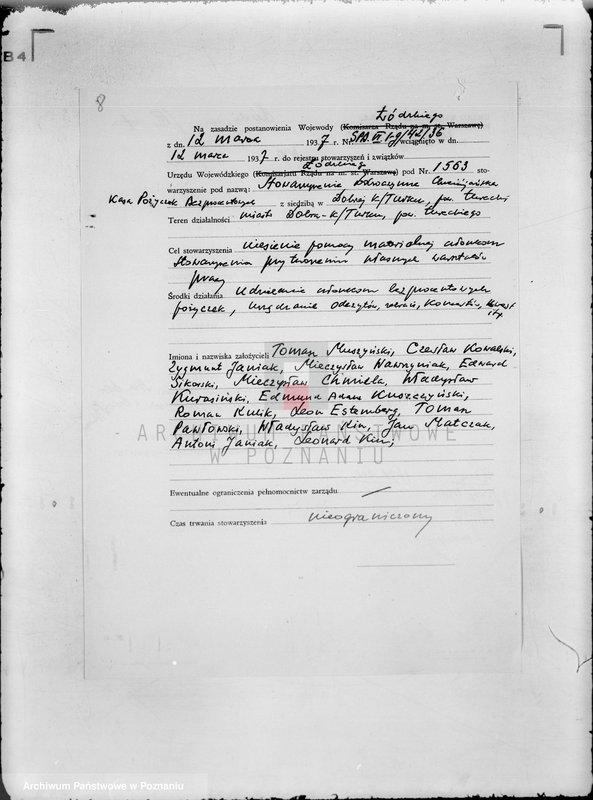 B4
8
Łódzkiego
Na zasadzie postanowienia Wojewody (Komisarza Rządu na m. st. Warszawę)
z dn. 12 marca 1937 r. Nr. VI 1-g/42/36 wciągnięto w dn.
12 marca 1937 r. do rejestru stowarzyszeń i związków
Łódzkiego
Urzędu Wojewódzkiego (Komisariatu Rządu na m. st. Warszawę) pod Nr. 1563 sto-
warzyszenie pod nazwą: Stowarzyszenie Dobroczynne Chrześcijańska
Kasa Pożyczek Bezprocentowych z siedzibą w Dobrej k/Turku, pow. turecki
Teren działalności miasto Dobra-k/Turku, pow. tureckiego
Cel stowarzyszenia niesienie pomocy materialnej członkom
Stowarzyszenia przy tworzeniu własnych warsztatów
pracy
Środki działania Udzielanie członkom bezprocentowych
pożyczek, urządzanie odczytów, zebrań, koncertów,
itp.
Imiona i nazwiska założycieli Toman Muszyński, Czesław Kowalski,
Zygmunt Janiak, Mieczysław Nawrzyniak, Edward
Sikorski, Mieczysław Chmiela, Władysław
Kurasiński, Edmund Adam Kuszczyński,
Roman Kulik, Leon Estemberg, Toman
Pawłowski, Władysław Kin, Jan Matczak,
Antoni Janiak, Leonard Kin;
ARCHIWUM PAŃSTWOWE
W POZNANIU
Ewentualne ograniczenia pełnomocnictw zarządu —
Czas trwania stowarzyszenia nieograniczony
Archiwum Państwowe w Poznaniu